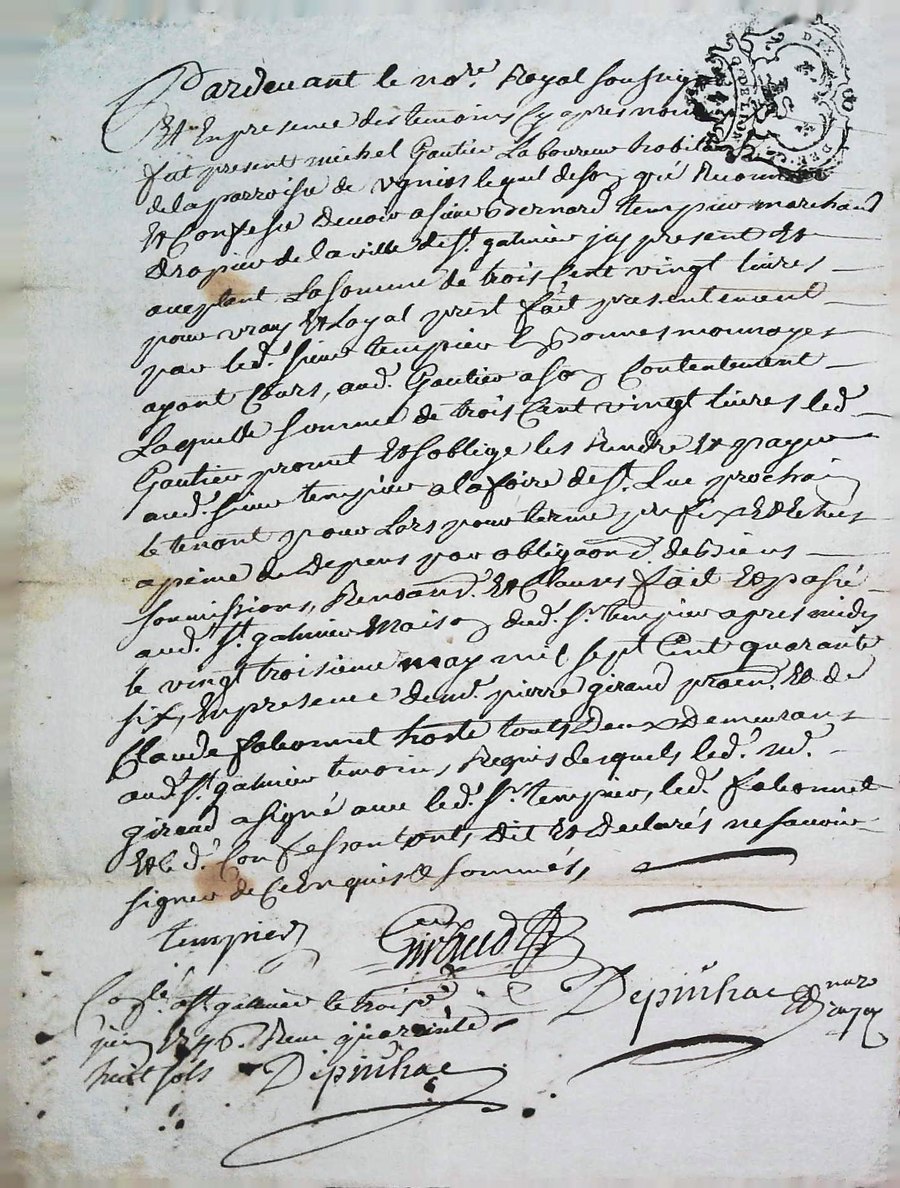 Pardevant le no.re Royal Soussig
Et En presence des temoins Cy apres nom
fut present michel Gautier Laboureur habitan
de la parroisse de vignies lequel de Son gré Reconn
Et Confesse devoir a sieur Bernard tempier marchand
drapier de la ville de S.t galmier icy present Et
aceptant La somme de trois Cent vingt livres
pour vray Et Loyal prest fait presentement
par led.t sieur tempier En bonnes monnoyes
ayant Cours, aud.t Gautier a Son Contentement
Laquelle somme de trois Cent vingt livres led.
Gautier promet Et S'oblige les Rendre Et payer
aud.t sieur tempier a la foire de S.t Luc prochain
le tenant pour Lors pour terme prefix Et Echeus
a peine de depens par obligaond. de Biens
Soumissions, Renoand. Et Clauses fait Et passé
aud.t S.t galmier Maison dud.t S.r tempier apres midy
le vingt troisieme may mil sept Cent quarante
six, En presence de m.e pierre giraud procu.r Et de
Claude fabonnet hoste touts Deux Demeurant
aud.t S.t galmier temoins, Requis desquels led.t m.e
giraud a signé avec led.t S.r tempier, led.t fabonnet
Et led.t Confessant ont dit Et declarés ne savoir
signer de Ce Enquis & sommés,
tempier
Giraud
Depinhac
Co.lé a S.t galmier le trois
juin 1746. Reçu quarante
huit sols Depinhac
DIX
DEN.
G. DE LION